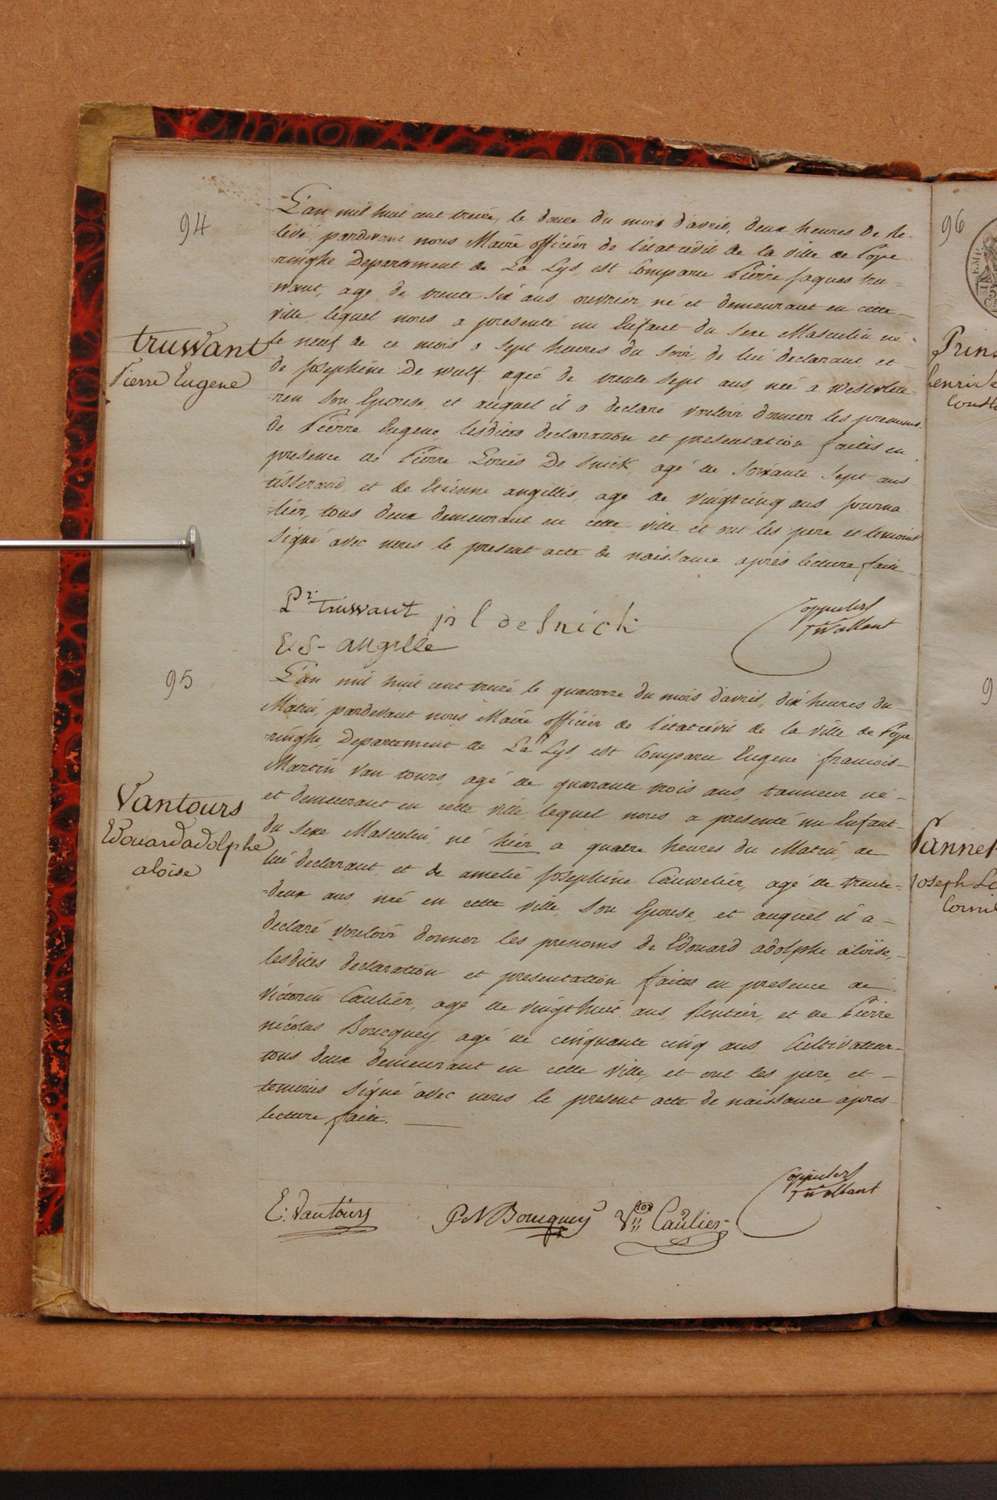 94
L'an mil huit cent treize, le douze du mois d'avril, deux heures de re-
levé, pardevant nous Maire officier de l'etat civil de la ville de Pope
ringhe Departement de La Lys, est Comparu Pierre Jaques tru-
want, agé de trente six ans ouvrier né et demeurant en cette
ville lequel nous a presenté un Enfant du Sexe Masculin né
le neuf de ce mois a Sept heures du Soir de lui declarant et
de Josephine De wulf agée de trente Sept ans née a Westvlete
ren Son Epouse, et auquel il a declaré vouloir donner les prenoms
de Pierre Eugene lesdites declaration et presentation faites en
presence de Pierre Louis De Snick agé de Soixante Sept ans
tisserand et de Etienne angillis agé de vingt cinq ans journa
lier, tous deux demeurant en cette ville et ont les pere et temoins
Signé avec nous le present acte de naissance après lecture faite
truwant
Pierre Eugene
Pr truwant
p l desnick
E. S- angille
95
L'an mil huit cent treize le quatorze du mois d'avril, dix heures du
Matin, pardevant nous Maire officier de l'etat civil de la ville de Pope
ringhe, Departement de La Lys est Comparu Eugene francois-
Martin Van tours, agé de quarante trois ans, tanneur né-
et demeurant en cette ville lequel nous a presenté un Enfant-
du Sexe Masculin, né hier a quatre heures du Matin, de
lui declarant, et de amelie Josephine Cauwelier, agé de trente-
-deux ans née en cette ville, Son Epouse, et auquel il a-
declaré vouloir donner les prenoms de Edouard adolphe aloïse,-
lesdites declaration et presentation faites en presence de
Victorin Caulier, agé de vingt huit ans, rentier, et de Pierre
nicolas Boucquey agé de cinquante cinq ans Cultivateur-
tous deux demeurant en cette ville, et ont les pere, et-
temoins Signé avec nous le present acte de naissance après
lecture faite.
Vantours
Edouard adolphe
aloïse
E: Vantours
P N Boucquey
Caulier
96